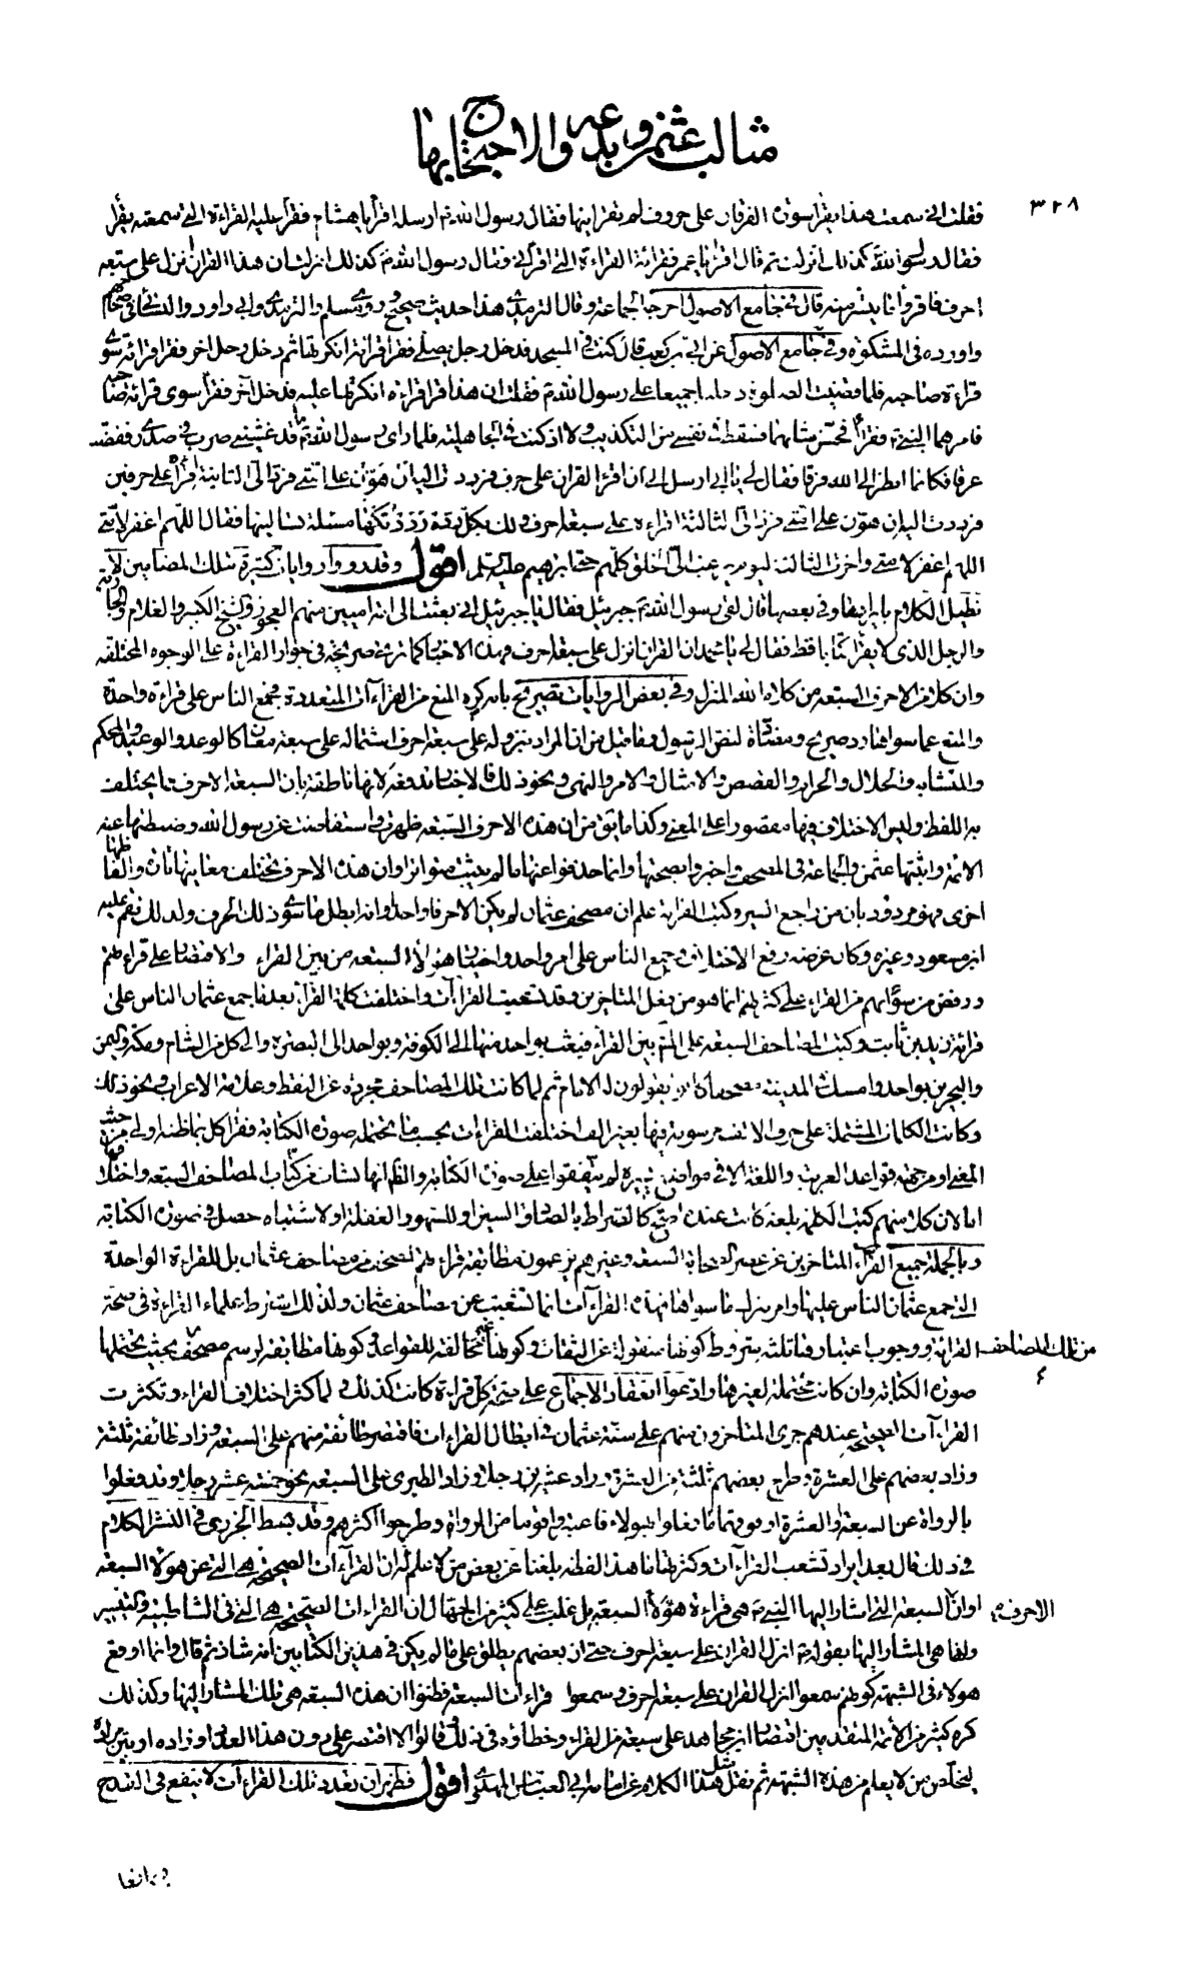 مثالب عثمن وبدعه والاحتجاج بها
٣٢٨
فقلت اني سمعت هذا يقرأ سورة الفرقان على حروف لم تقرأنيها فقال رسول الله ص ارسله اقرأ يا هشام فقرأ عليه القراءة التي سمعته يقرأ
فقال رسول الله ص كذلك انزلت ثم قال اقرأ يا عمر فقرأت القراءة التي اقرأني فقال رسول الله ص كذلك انزلت ان هذا القران نزل على سبعة
احرف فاقرؤا ما تيسر منه قال في جامع الاصول اخرجه الجماعة وقال الترمذي هذا حديث صحيح وروى مسلم والترمذي وابي داود والنسائي في صحاحهم
واورده في المشكوة وفي جامع الاصول عن ابي بن كعب قال كنت في المسجد فدخل رجل يصلي فقرأ قراءة انكرتها ثم دخل رجل اخر فقرأ قراءة سوى
قراءة صاحبه فلما قضيت الصلوة دخلنا جميعا على رسول الله ص فقلت ان هذا قرأ قراءة انكرتها عليه فدخل آخر فقرأ سوى قراءة صاحبه
فامرهما النبي ص فقرأا فحسن شانهما فسقط في نفسي من التكذيب ولا اذ كنت في الجاهلية فلما راى رسول الله ص ما قد غشيني ضرب في صدري ففضت
عرقا فكانما انظر الى الله فرقا فقال لي يا ابي ارسل الي ان اقرء القران على حرف فرددت اليه ان هون على امتي فرد الي الثانية اقرأه على حرفين
فرددت اليه ان هون على امتي فرد الي الثالثة اقراءه على سبعة احرف ولك بكل ردة رددتكها مسئلة تسالنيها فقال اللهم اغفر لامتي
اللهم اغفر لامتي واخرت الثالثة ليوم يرغب الي الخلق كلهم حتى ابرهيم عليه السلم اقول وقد رووا روايات كثيرة بتلك المضامين لا
نطيل الكلام بايرادها وفي بعضها قال لقي رسول الله ص جبرئيل فقال يا جبرئيل اني بعثت الى امة اميين منهم العجوز والشيخ الكبير والغلام والجارية
والرجل الذي لا يقرأ كتابا قط فقال لي يا محمد ان القران نزل على سبعة احرف فهذه الاخبار كما ترى صريحة في جواز القراءة على الوجوه المختلفة
وان كلا من الاحرف السبعة من كلام الله المنزل وفي بعض الروايات تصريح بانه كره المنع من القراءات المتعددة فجمع الناس على قراءة واحدة
والمنع عما سواها رد صريح ومضادة لنص الرسول وما قيل من ان المراد بنزوله على سبعة احرف اشتماله على سبعة معان كالوعد والوعيد والمحكم
والمتشابه والحلال والحرام والقصص والامثال والامر والنهي ونحو ذلك فالاخبار تدفعه لانها ناطقة بان السبعة الاحرف مما يختلف
به اللفظ وليس الاختلاف فيها مقصورا على المعنى وكذا ما يق من ان هذه الاحرف السبعة ظهرت واستفاضت عن رسول الله وضبطها عنه
الائمة واثبتها عثمن والجماعة في المصحف واخبروا بصحتها وانما حذفوا عنها ما لم يثبت متواترا وان هذه الاحرف تختلف معانيها تارة والفاظها
اخرى فهو مردود بان من راجع السير وكتب القراءة علم ان مصحف عثمان لم يكن الا حرفا واحدا وانه ابطل ما سوى ذلك الحرف ولذلك نقم عليه
ابن مسعود وغيره وكان غرضه رفع الاختلاف وجمع الناس على امر واحد واختيار هؤلاء السبعة من بين القراء والاقتصار على قراءتهم
ورفض من سواهم من القراء على كثرتهم انما هو من فعل المتاخرين وقد تشعبت القراءات واختلفت كلمة القراء بعد ما جمع عثمان الناس على
قراءة زيد بن ثابت وكتب المصاحف السبعة على المشهور بين القراء فبعث بواحد منها الى الكوفة وبواحد الى البصرة والى كل من الشام ومكة واليمن
والبحرين بواحد وامسك في المدينة مصحفا كانوا يقولون له الامام ثم لما كانت تلك المصاحف مجردة عن النقط وعلامة الاعراب ونحو ذلك
وكانت الكلمات المشتملة على حروف الالف مرسومة فيها بغير الف اختلفت القراءات بحسب ما تحتمله صورة الكتابة فقرأ كل بما ظنه اولى من حيث
المعنى او من جهة قواعد العربية واللغة الا في مواضع يسيرة لم يتفقوا على صورة الكتابة والظاهر انها نشات من كتاب المصاحف السبعة واختلافها
اما لان كلا منهم كتب الكلمة بلغة كانت عنده اصح كالصراط بالصاد والسين او للسهو والغفلة او لاشتباه حصل في صورة الكتابة
وبالجملة جميع القراء المتاخرين عن عصر الصحابة السبعة وغيرهم يزعمون مطابقة قراءتهم لمصحف من مصاحف عثمان بل للقراءة الواحدة
التي جمع عثمان الناس عليها وامر بترك ما سواها فهذه القراءات انما تشعبت عن مصاحف عثمان ولذلك اشترط علماء القراءة في صحة
من تلك المصاحف القراءة ووجوب اعتبارها ثلثة شروط كونها منقولة عن الثقات وكونها غير مخالفة للقواعد وكونها مطابقة لرسم مصحف بحيث تحتملها
صورة الكتابة وان كانت محتملة لغيرها وادعوا انعقاد الاجماع على صحة كل قراءة كانت كذلك ثم لما كثر اختلاف القراء وتكثرت
القراءات الصحيحة عندهم جرى المتاخرون منهم على سنة عثمان في ابطال القراءات فاقتصر طائفة منهم على السبعة وزاد طائفة ثلثة
وزاد بعضهم على العشرة وطرح بعضهم ثلثة من العشرة وزاد عشرين رجلا وزاد الطبري على السبعة نحو خمسة عشر رجلا وقد فعلوا
بالرواة عن السبعة والعشرة او ما فوقهما ما فعلوا بهؤلاء فاعتبروا قوما من الرواة وطرحوا اكثرهم وقد بسط الجزري في النشر الكلام
في ذلك قال بعد ايراد تشعب القراءات وكثرتها ما هذا لفظه بلغنا عن بعض من لا علم له ان القراءات الصحيحة هي التي عن هؤلاء السبعة
الاحرف او ان السبعة التي اشار اليها النبي ص هي قراءة هؤلاء السبعة بل غلب على كثير من الجهال ان القراءات الصحيحة هي التي في الشاطبية والتيسير
وانها هي المشار اليها بقوله ص انزل القران على سبعة احرف حتى ان بعضهم يطلق على ما لم يكن في هذين الكتابين انه شاذ ثم قال وانما اوقع
هولاء في الشبهة كونهم سمعوا انزل القران على سبعة احرف وسمعوا قراءات السبعة فظنوا ان هذه السبعة هي تلك المشار اليها وكذلك
كره كثير من الائمة المتقدمين اقتصار ابن مجاهد على سبعة من القراء وخطاؤه في ذلك وقالوا الا اقتصر على دون هذا العدد او زاده او بين مراده
ليخلص من لا يعلم من هذه الشبهة ثم نقل مثل هذا الكلام عن امامه ابي العباس المهدي اقول فظهر ان تعدد تلك القراءات لا ينفع في القدح